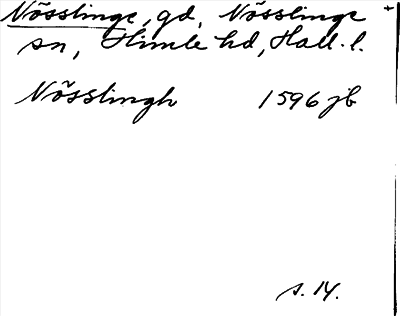 Nösslinge, gd, Nösslinge
sn, Himle hd, Hall. l.
Nösslingh 1596 jb
s. 14.